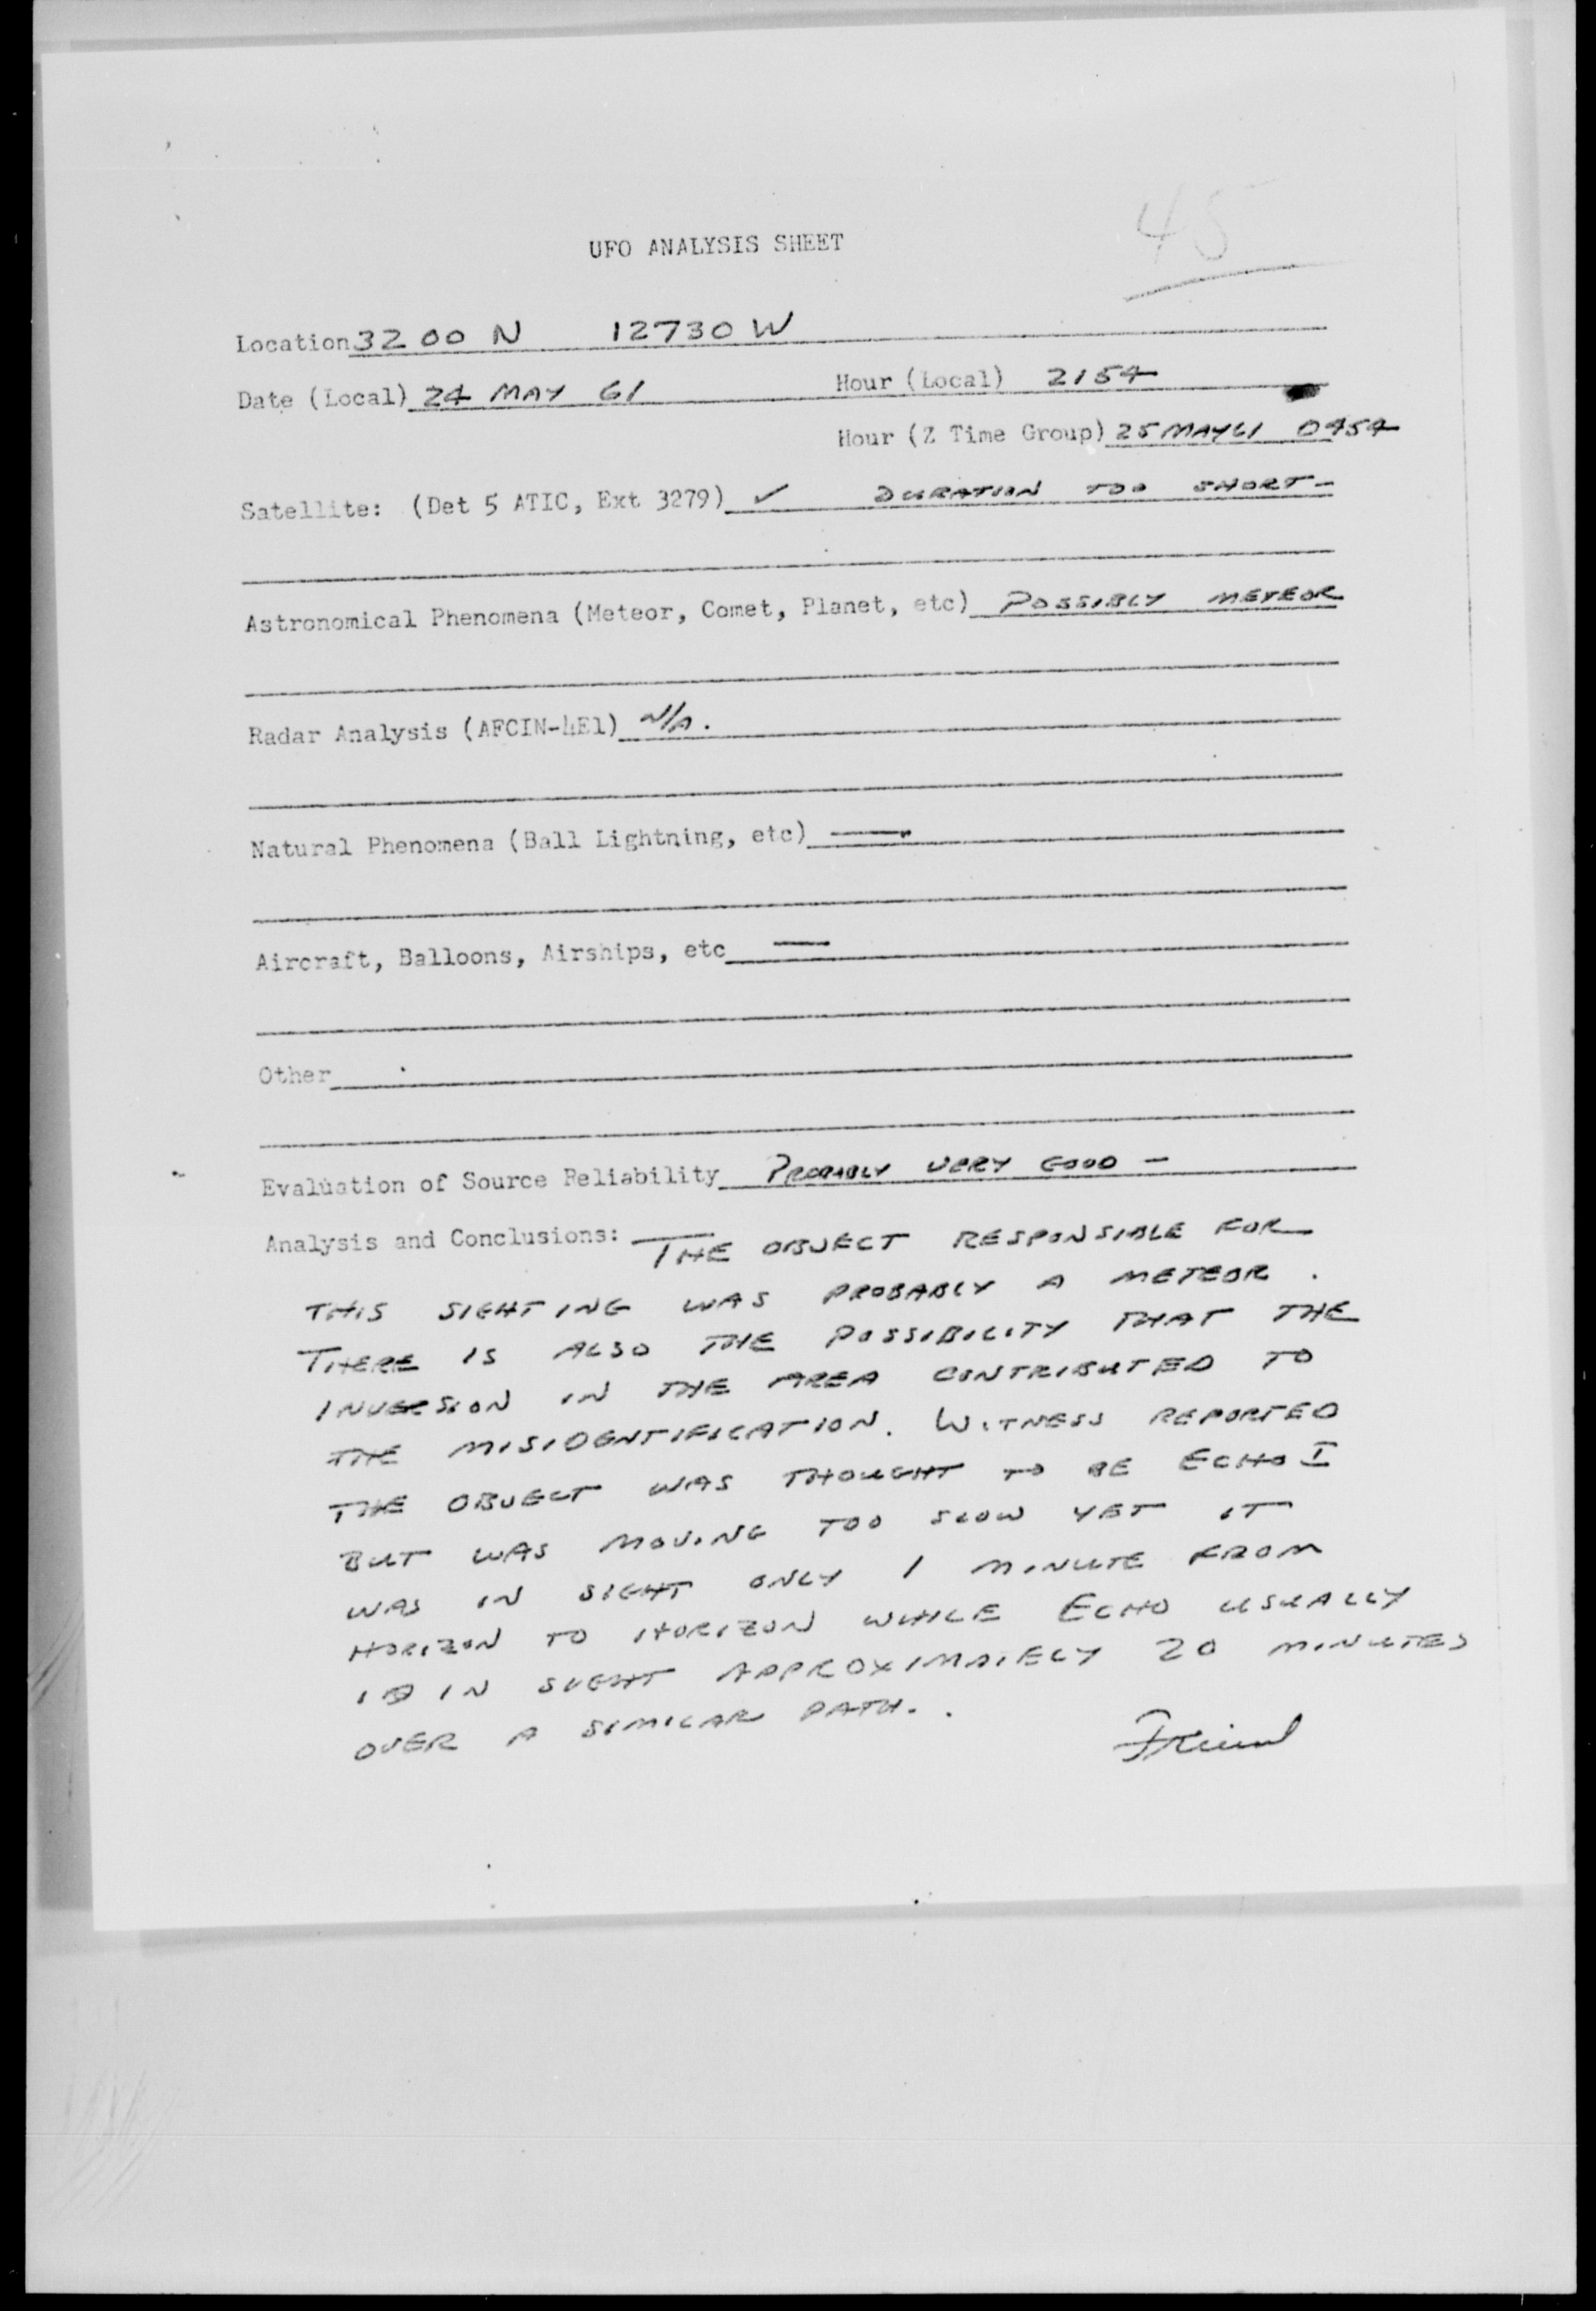 45
UFO ANALYSIS SHEET
Location 3200 N 12730 W
Date (Local) 24 MAY 61 Hour (Local) 2154
Hour (Z Time Group) 25 MAY 61 0454
Satellite: (Det 5 ATIC, Ext 3279) ✓ DURATION TOO SHORT -
Astronomical Phenomena (Meteor, Comet, Planet, etc) POSSIBLY METEOR
Radar Analysis (AFCIN-4E1) N/A.
Natural Phenomena (Ball Lightning, etc) —
Aircraft, Balloons, Airships, etc —
Other
Evaluation of Source Reliability PROBABLY VERY GOOD -
Analysis and Conclusions: THE OBJECT RESPONSIBLE FOR
THIS SIGHTING WAS PROBABLY A METEOR.
THERE IS ALSO THE POSSIBILITY THAT THE
INVERSION IN THE AREA CONTRIBUTED TO
THE MISIDENTIFICATION. WITNESS REPORTED
THE OBJECT WAS THOUGHT TO BE ECHO I
BUT WAS MOVING TOO SLOW YET IT
WAS IN SIGHT ONLY 1 MINUTE FROM
HORIZON TO HORIZON WHILE ECHO USUALLY
IS IN SIGHT APPROXIMATELY 20 MINUTES
OVER A SIMILAR PATH..
Friend